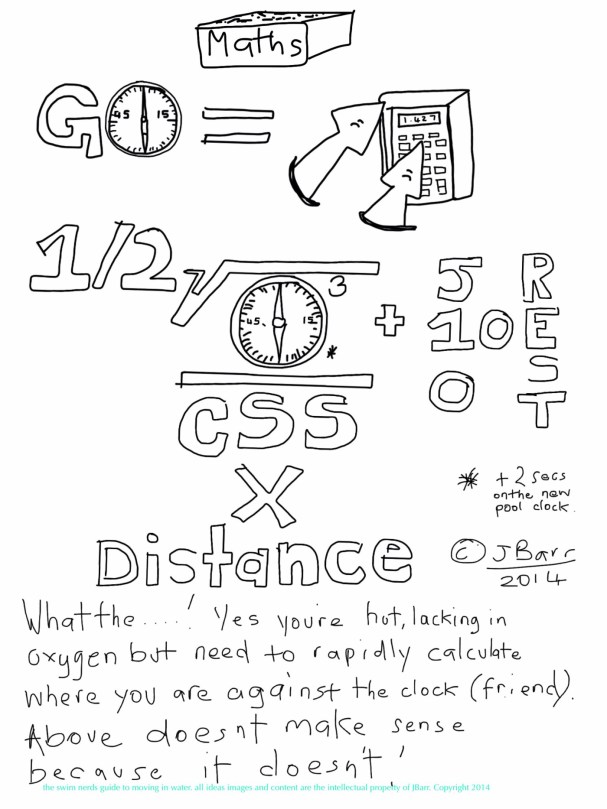 Maths
GO =
45 15
1.427
1/2√ 3 + 5 R
45. 15. 10 E
* 0 S
T
CSS
X
* + 2 secs
on the new
pool clock.
Distance
© JBarr
2014
What the ....! Yes you're hot, lacking in
oxygen but need to rapidly calculate
where you are against the clock (friend).
Above doesnt make sense
because it doesn't!
the swim nerds guide to moving in water. all ideas images and content are the intellectual property of JBarr. Copyright 2014